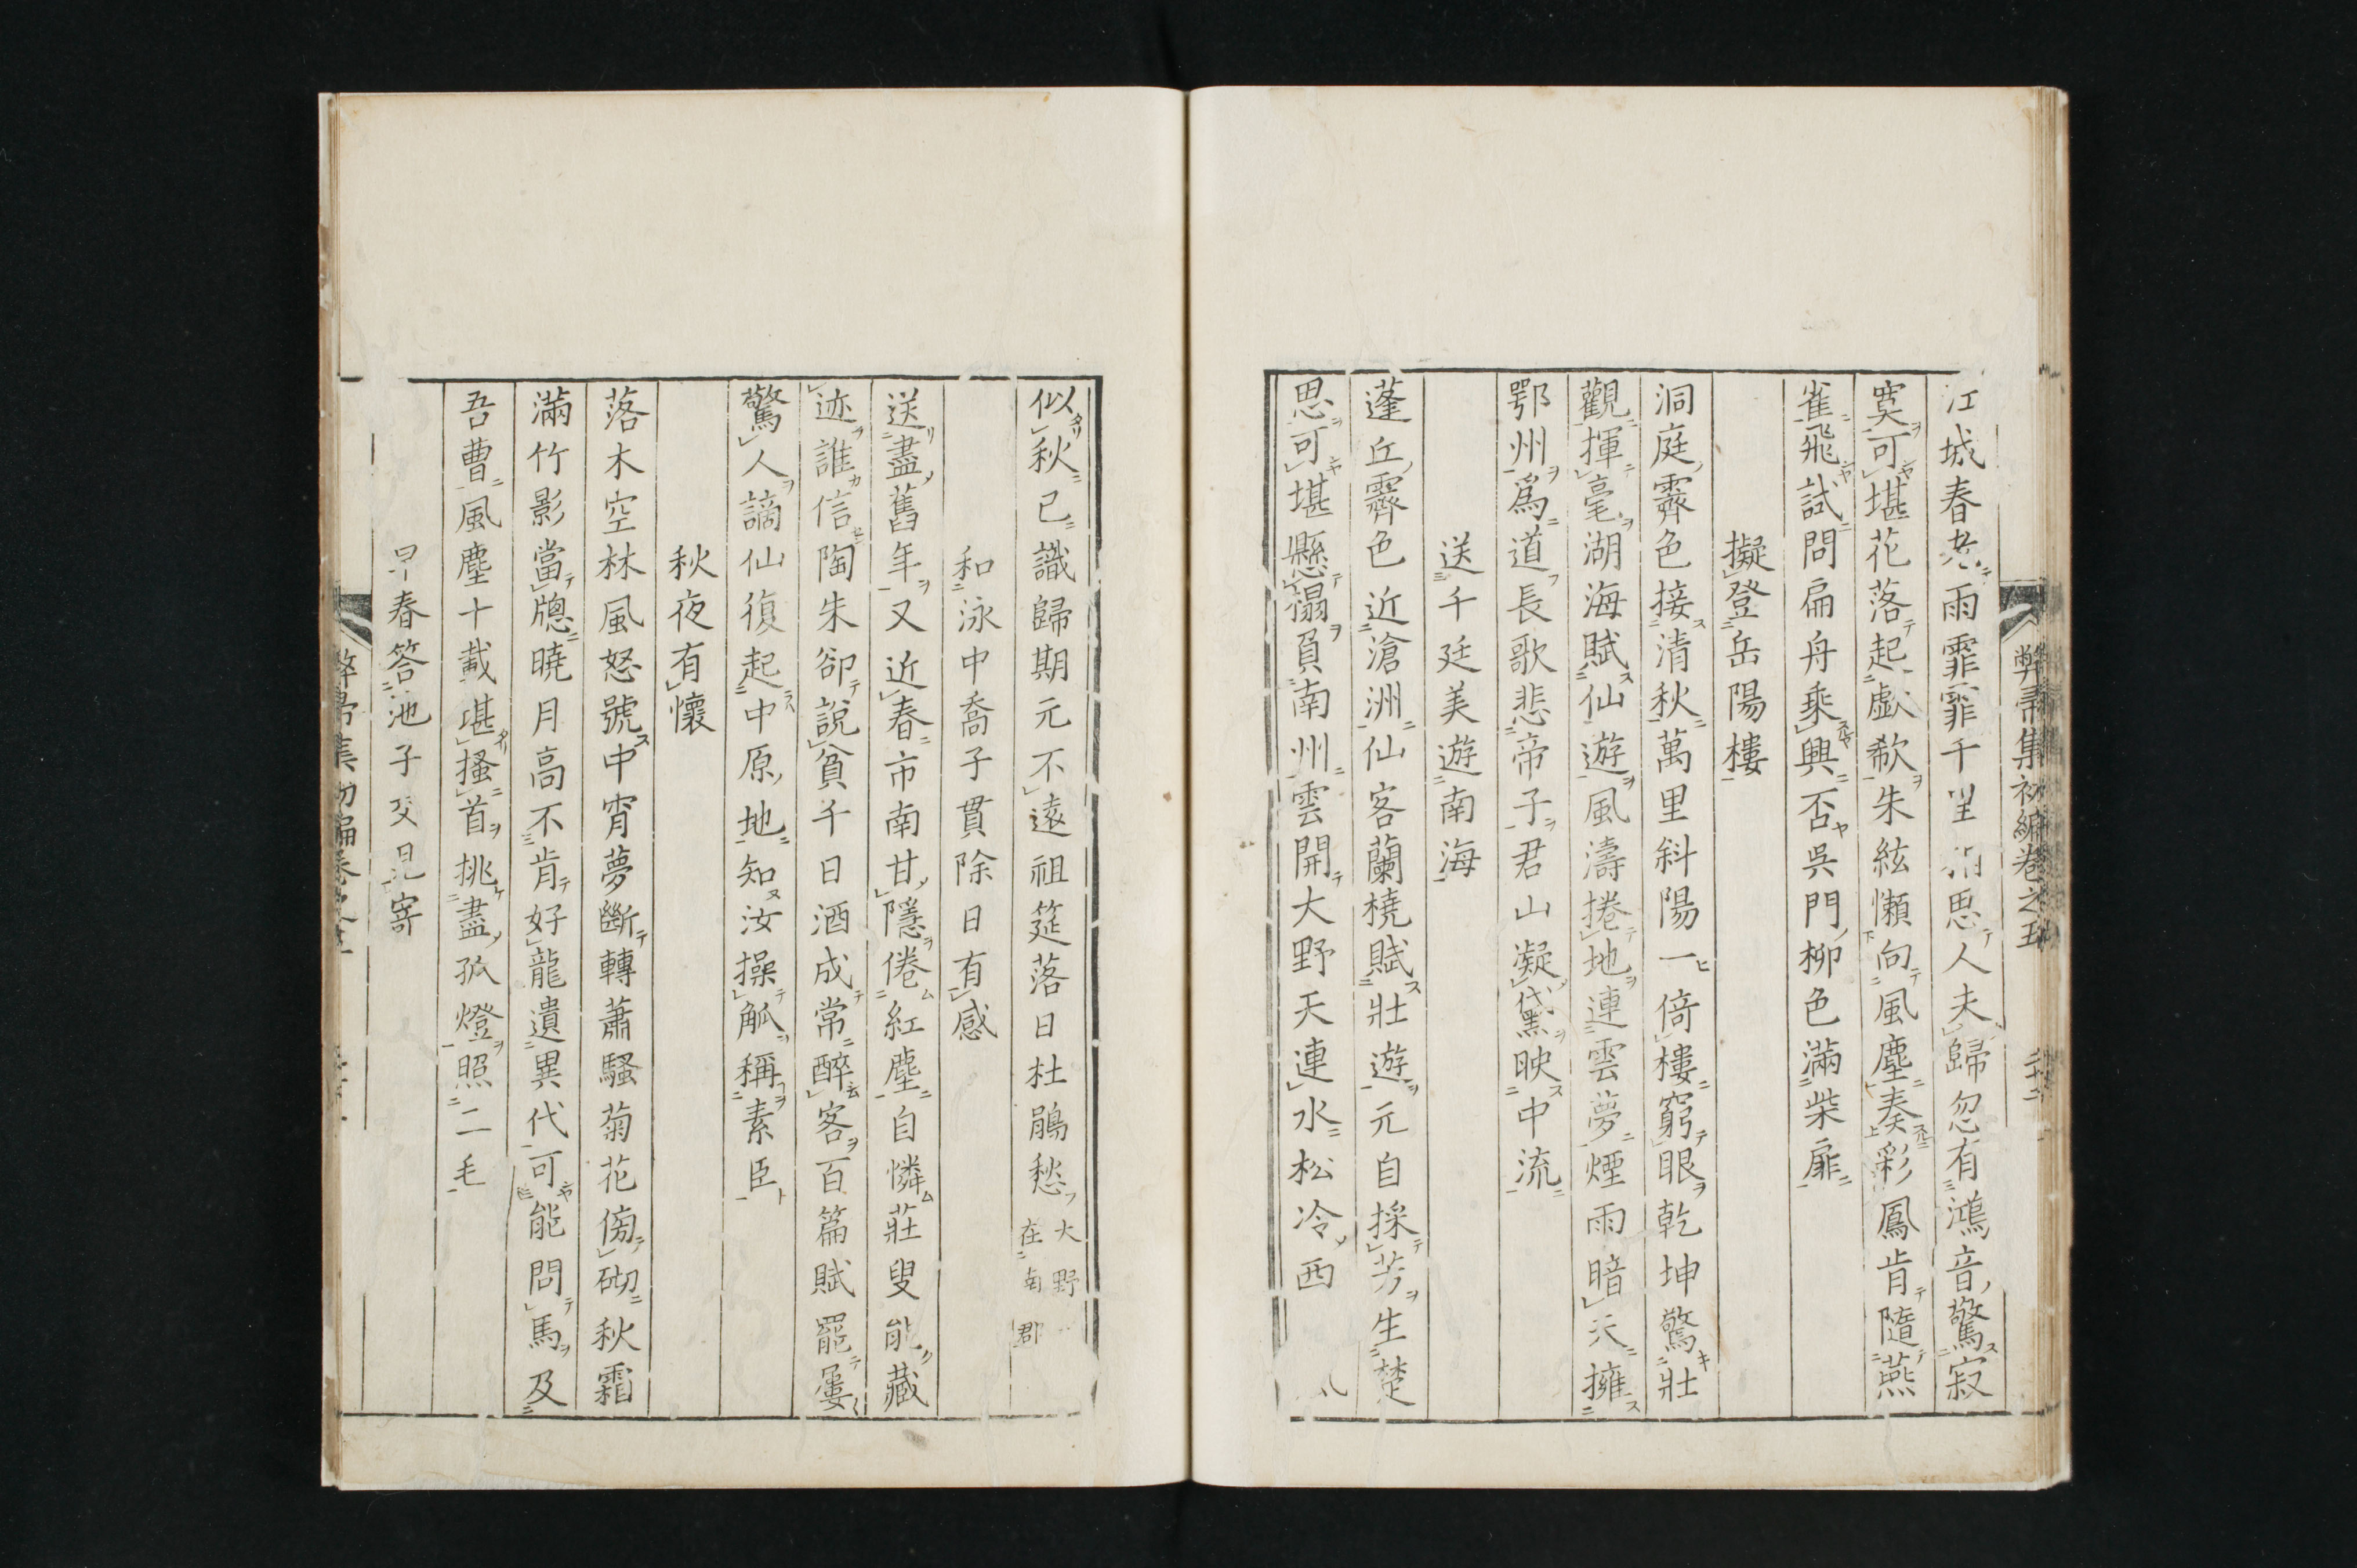 弊帚集初編卷之五
江城春老雨霏霏千里相思人未歸忽有鴻音驚寂
寞可堪花落起歔欷朱絃懶向風塵奏彩鳳肯隨燕
雀飛試問扁舟乘興否吳門柳色滿柴扉
擬登岳陽樓
洞庭霽色接清秋萬里斜陽一倚樓窮眼乾坤驚壯
觀揮毫湖海賦仙遊風濤捲地連雲夢煙雨暗天擁
鄂州爲道長歌悲帝子君山凝黛映中流
送千廷美遊南海
蓬丘霽色近滄洲仙客蘭橈賦壯遊元自採芳生楚
思可堪懸榻負南州雲開大野天連水松冷西
似秋已識歸期元不遠祖筵落日杜鵑愁 大野在南郡
和泳中喬子貫除日有感
送盡舊年又近春市南甘隱倦紅塵自憐莊叟能藏
迹誰信陶朱卻說貧千日酒成常醉客百篇賦罷屢
驚人謫仙復起中原地知汝操觚稱素臣
秋夜有懷
落木空林風怒號中宵夢斷轉蕭騷菊花傍砌秋霜
滿竹影當牕曉月高不肯好龍遺異代可能問馬及
吾曹風塵十載堪搔首挑盡孤燈照二毛
早春答池子交見寄